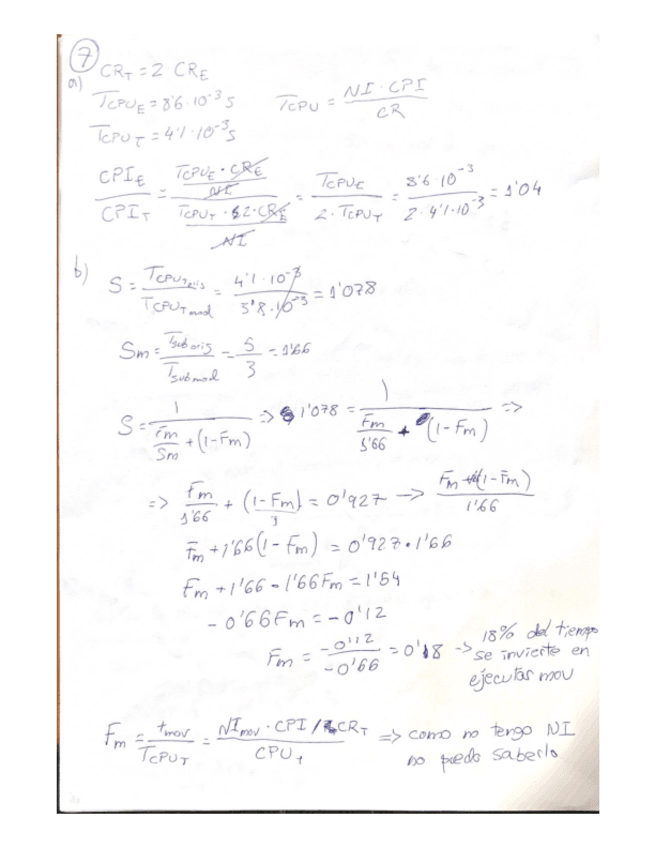 7
a) CR_T = 2 CR_E
T_CPU_E = 8'6·10^-3 s    T_CPU = NI · CPI / CR
T_CPU_T = 4'1·10^-3 s
CPI_E / CPI_T = (T_CPU_E · CR_E / NI) / (T_CPU_T · 2·CR_E / NI) = T_CPU_E / 2·T_CPU_T = 8'6·10^-3 / 2·4'1·10^-3 = 1'04
b) S = T_CPU_T orig / T_CPU_T mod = 4'1·10^-3 / 3'8·10^-3 = 1'078
Sm = T_sub orig / T_sub mod = 5/3 = 1'66
S = 1 / (Fm/Sm + (1-Fm)) => 1'078 = 1 / (Fm/1'66 + (1-Fm)) =>
=> Fm/1'66 + (1-Fm) = 0'927 -> Fm (1-Fm) / 1'66
Fm + 1'66(1-Fm) = 0'927·1'66
Fm + 1'66 - 1'66Fm = 1'54
- 0'66Fm = -0'12
Fm = -0'12 / -0'66 = 0'18 -> 18% del tiempo
se invierte en
ejecutar mov
Fm = t_mov / T_CPU_T = NI_mov · CPI / CR_T / CPU_t => como no tengo NI
no puedo saberlo